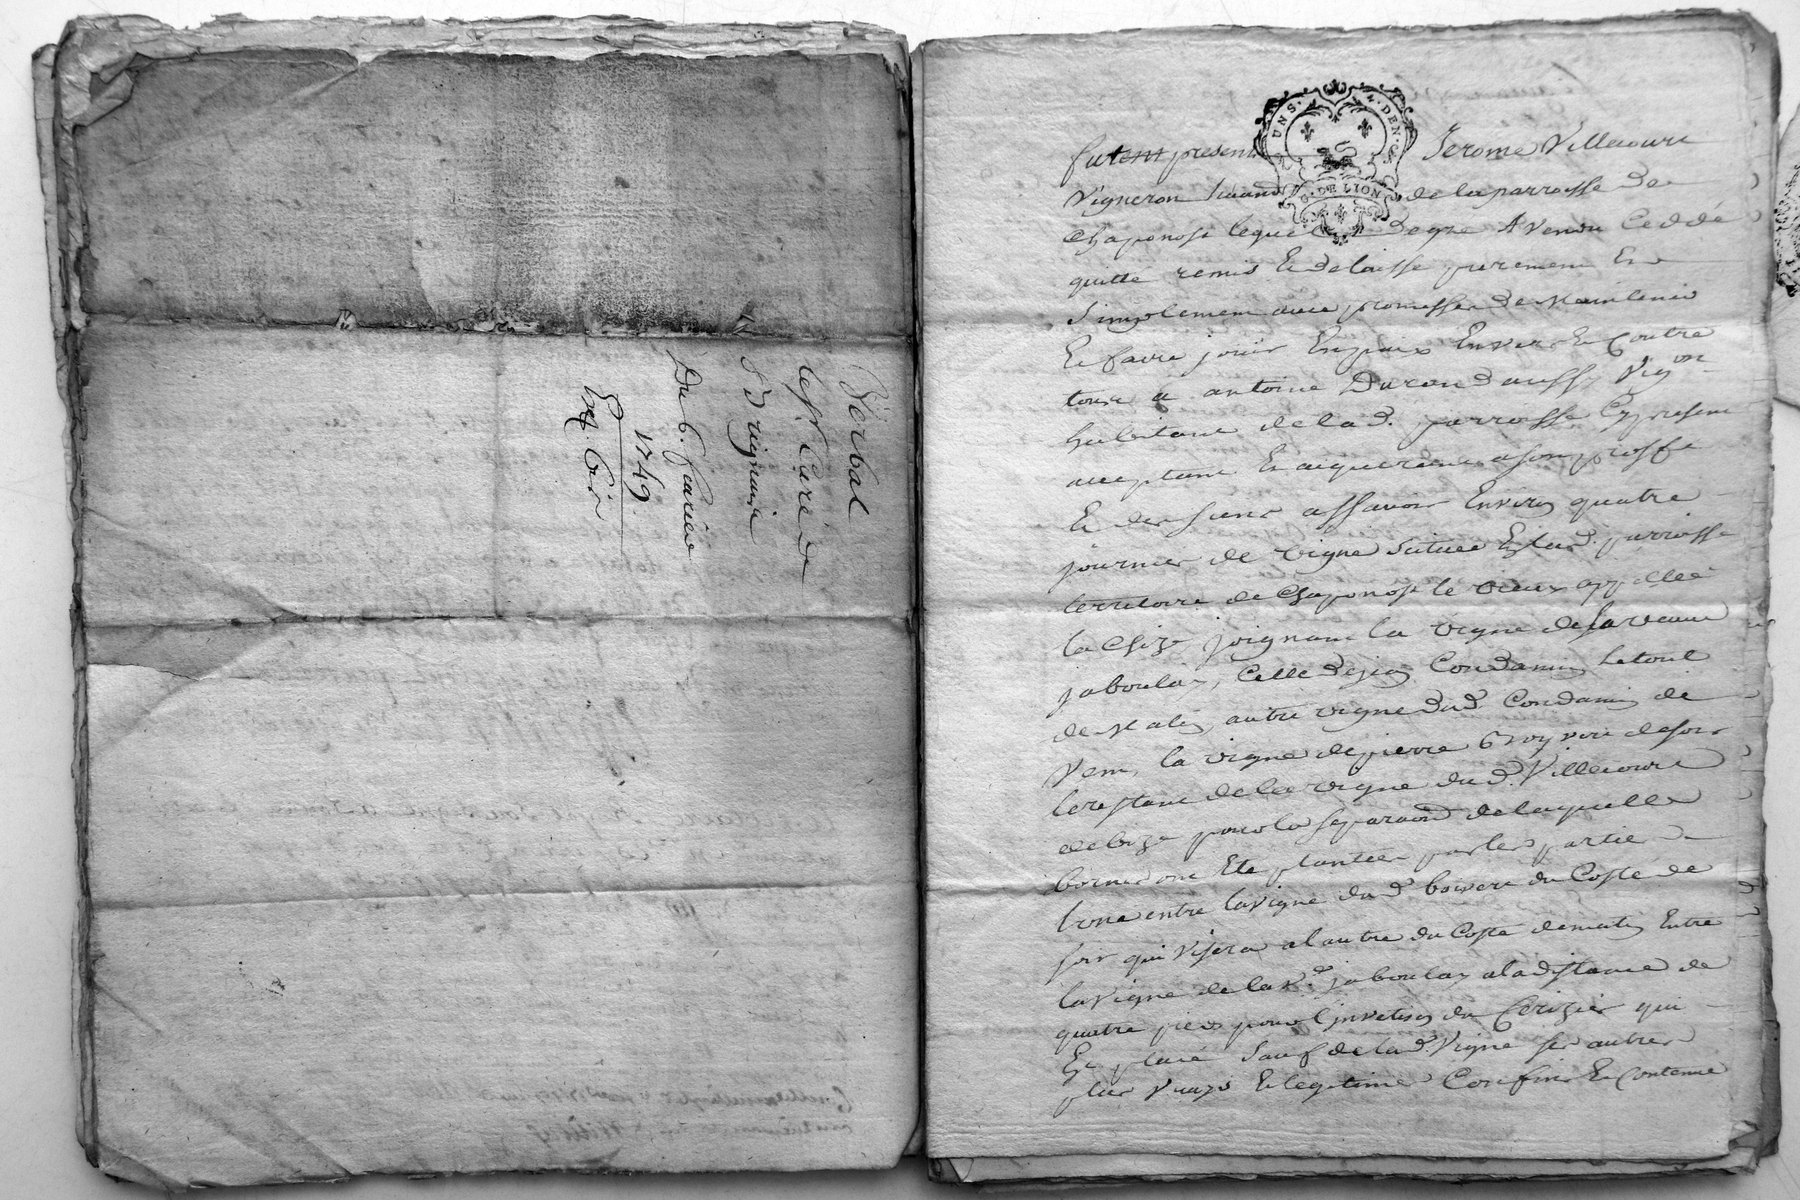 Verbal
le Sr Curé de
Brignais
Du 6. fevrier
1749.
UNS. 4. DEN.
G. DE LION
furent present Jerome Villecourt
Vigneron habitant de la parroisse de
Chaponost lequel de gre A Vendu Ceddé
quitté remis Et delaisse purement Et
Simplement avec promesse de Maintenir
Et faire jouir En paix Envers Et Contre
tous a antoine Durand aussy Vignon
habitant de lad. parroisse Cy present
acceptant Et aquerant a son proffit
Et des siens assavoir Environ quatre
journées de vigne Scituée En lad. parroisse
territoire de Chaponost le vieux appellée
la joignant la vigne de la veuve
jaboulay, Celle de jean Condamin le tout
de Matin, autre vigne dud. Condamin de
Vent, la vigne de pierre de soir
le restant de la vigne dud. Villecourt
de bize pour la separaon de laquelle
bornes ont Eté plantées par les parties
l'une entre la vigne dud. du Costé de
soir qui visera a l'autre du Costé de matin Entre
la vigne de la ve. jaboulay a la distance de
quatre pieds pour du Cerizier qui
Est placé Sauf de lad. Vigne ses autres
plus vrays Et legitimes Confins Et Contenue